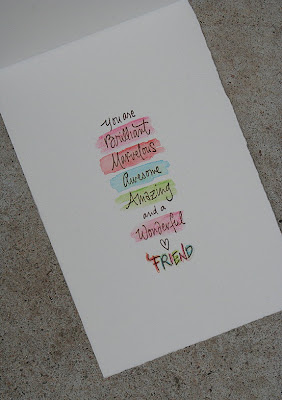 You are
Brilliant
Marvelous
Awesome
Amazing
and a
Wonderful
FRIEND